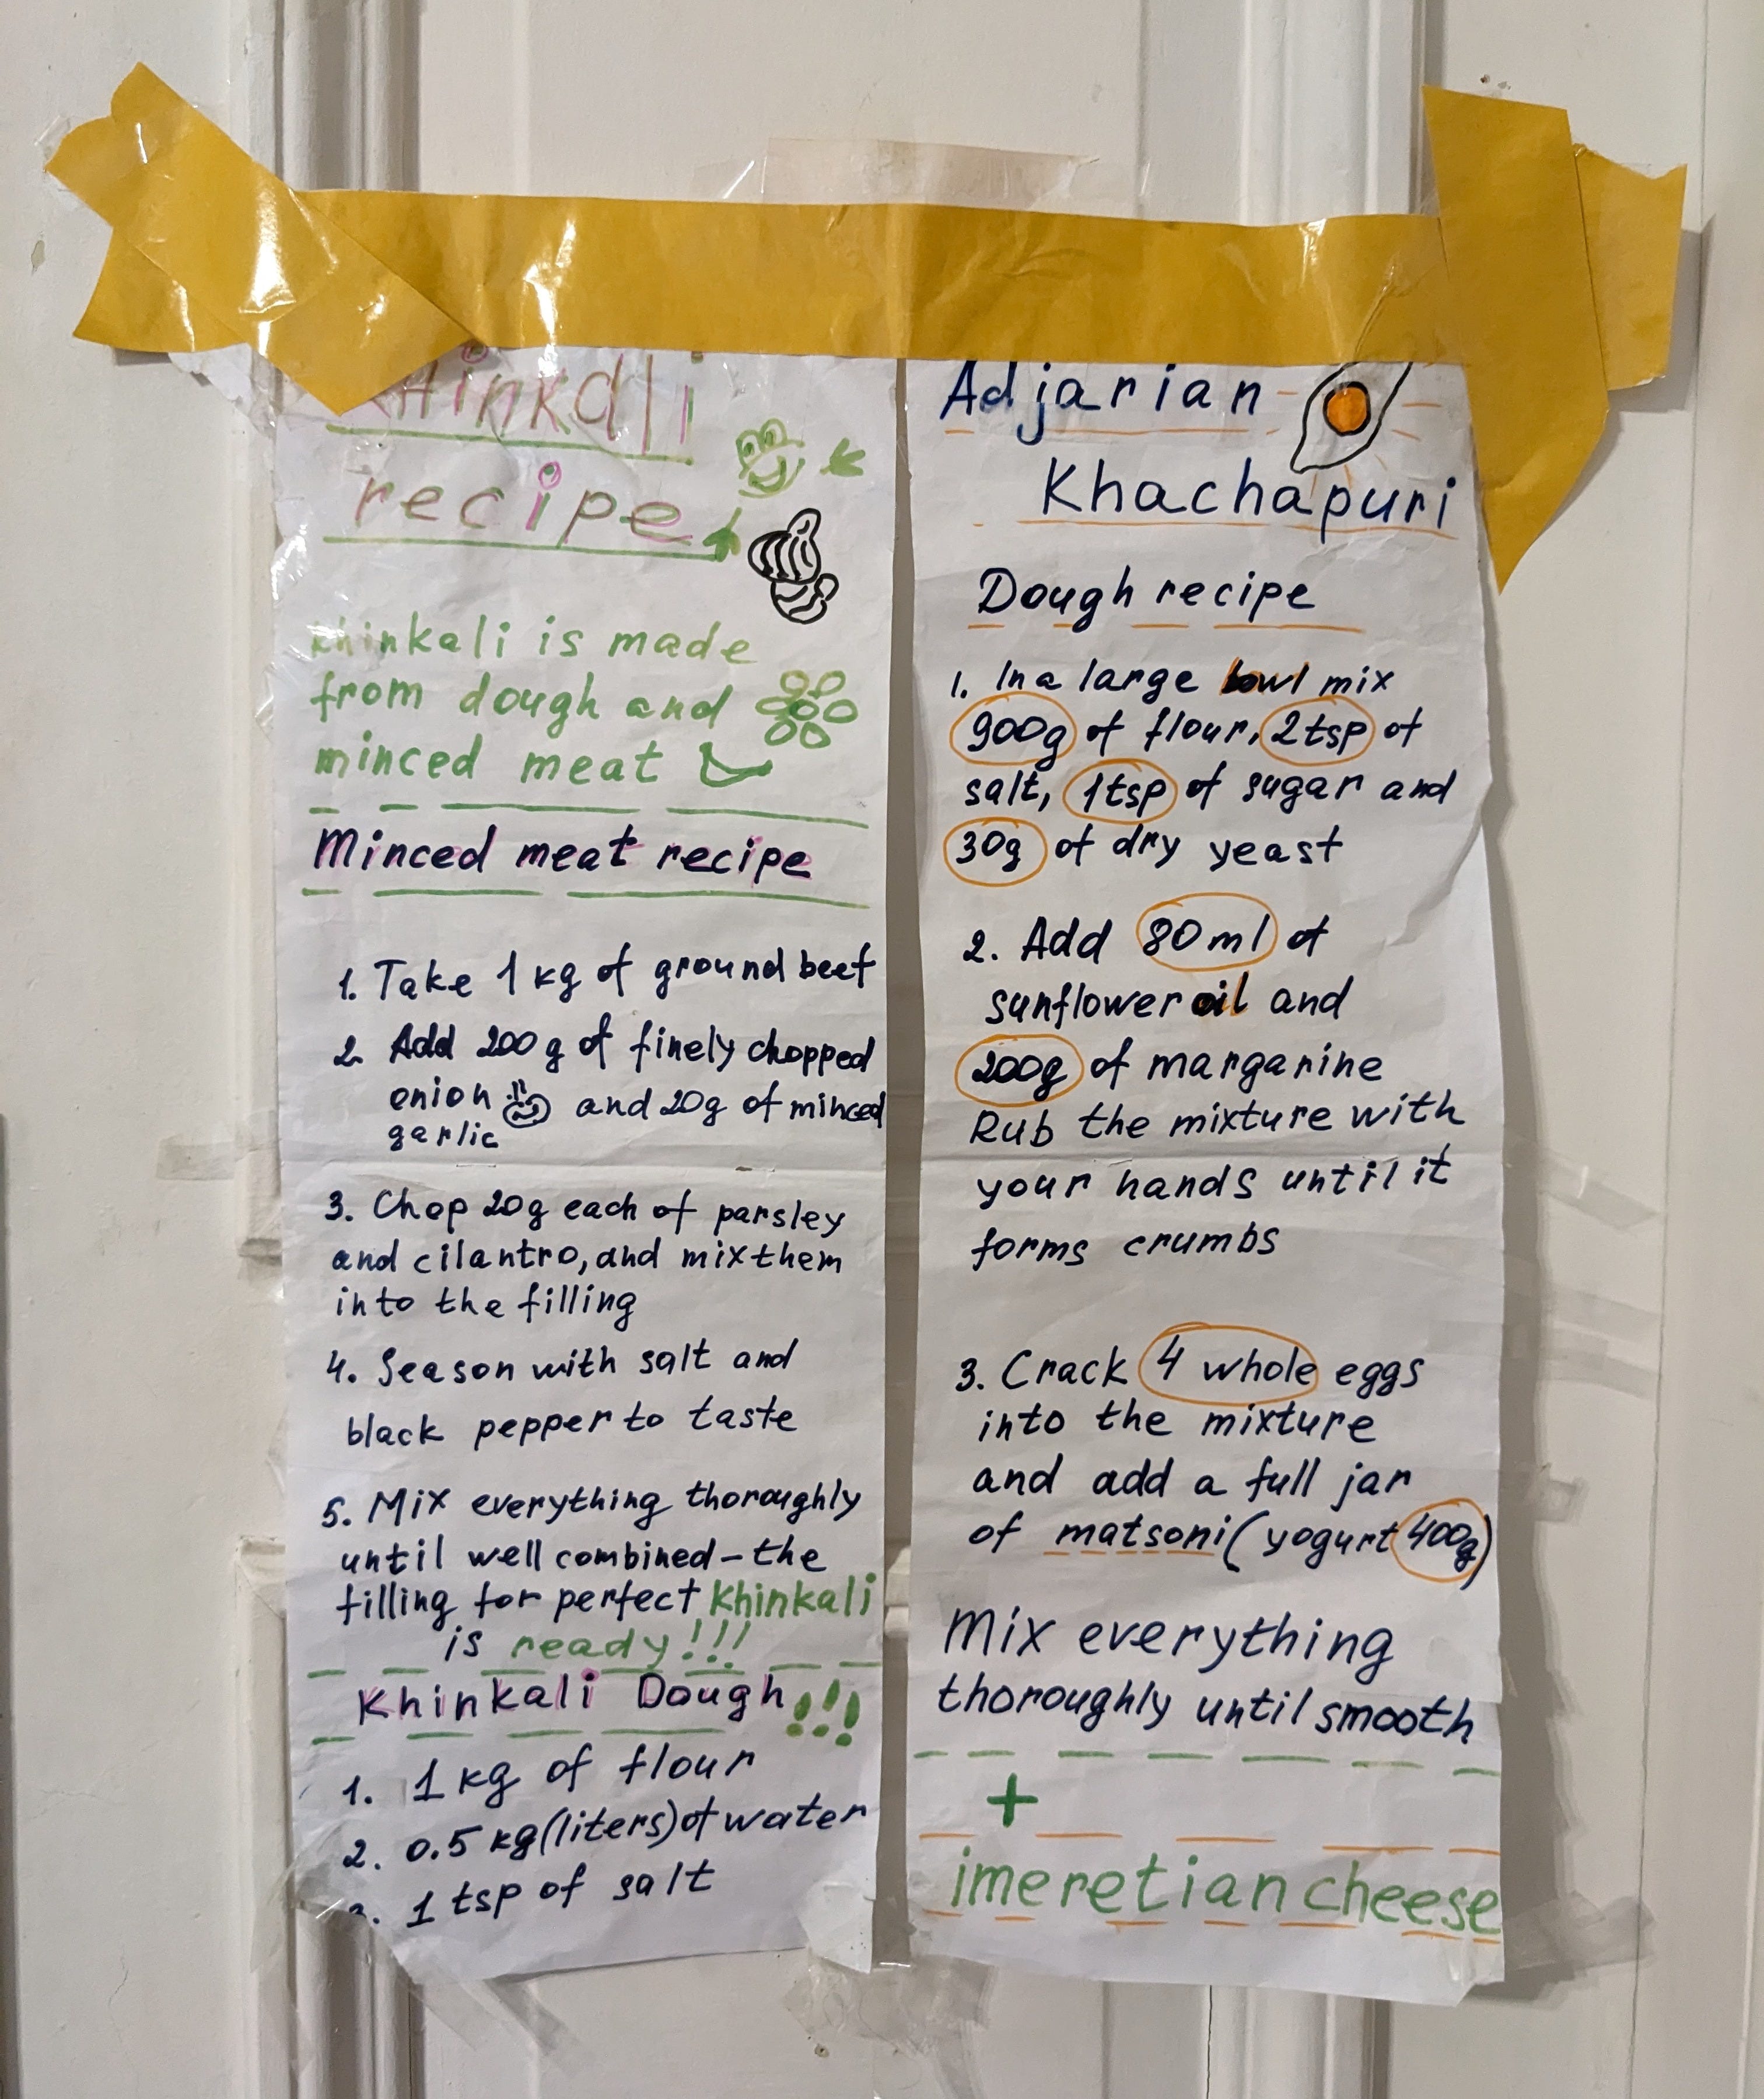 Khinkali
recipe
khinkali is made
from dough and
minced meat
Minced meat recipe
1. Take 1 kg of ground beef
2. Add 200 g of finely chopped
onion and 20g of minced
garlic
3. Chop 20g each of parsley
and cilantro, and mix them
into the filling
4. Season with salt and
black pepper to taste
5. Mix everything thoroughly
until well combined – the
filling for perfect Khinkali
is ready!!!
Khinkali Dough!!!
1. 1 kg of flour
2. 0.5 kg (liters) of water
3. 1 tsp of salt
Adjarian
Khachapuri
Dough recipe
1. In a large bowl mix
900g of flour, 2tsp of
salt, 1tsp of sugar and
30g of dry yeast
2. Add 80 ml of
sunflower oil and
200g of margarine
Rub the mixture with
your hands until it
forms crumbs
3. Crack 4 whole eggs
into the mixture
and add a full jar
of matsoni (yogurt 400g)
Mix everything
thoroughly until smooth
+
imeretian cheese